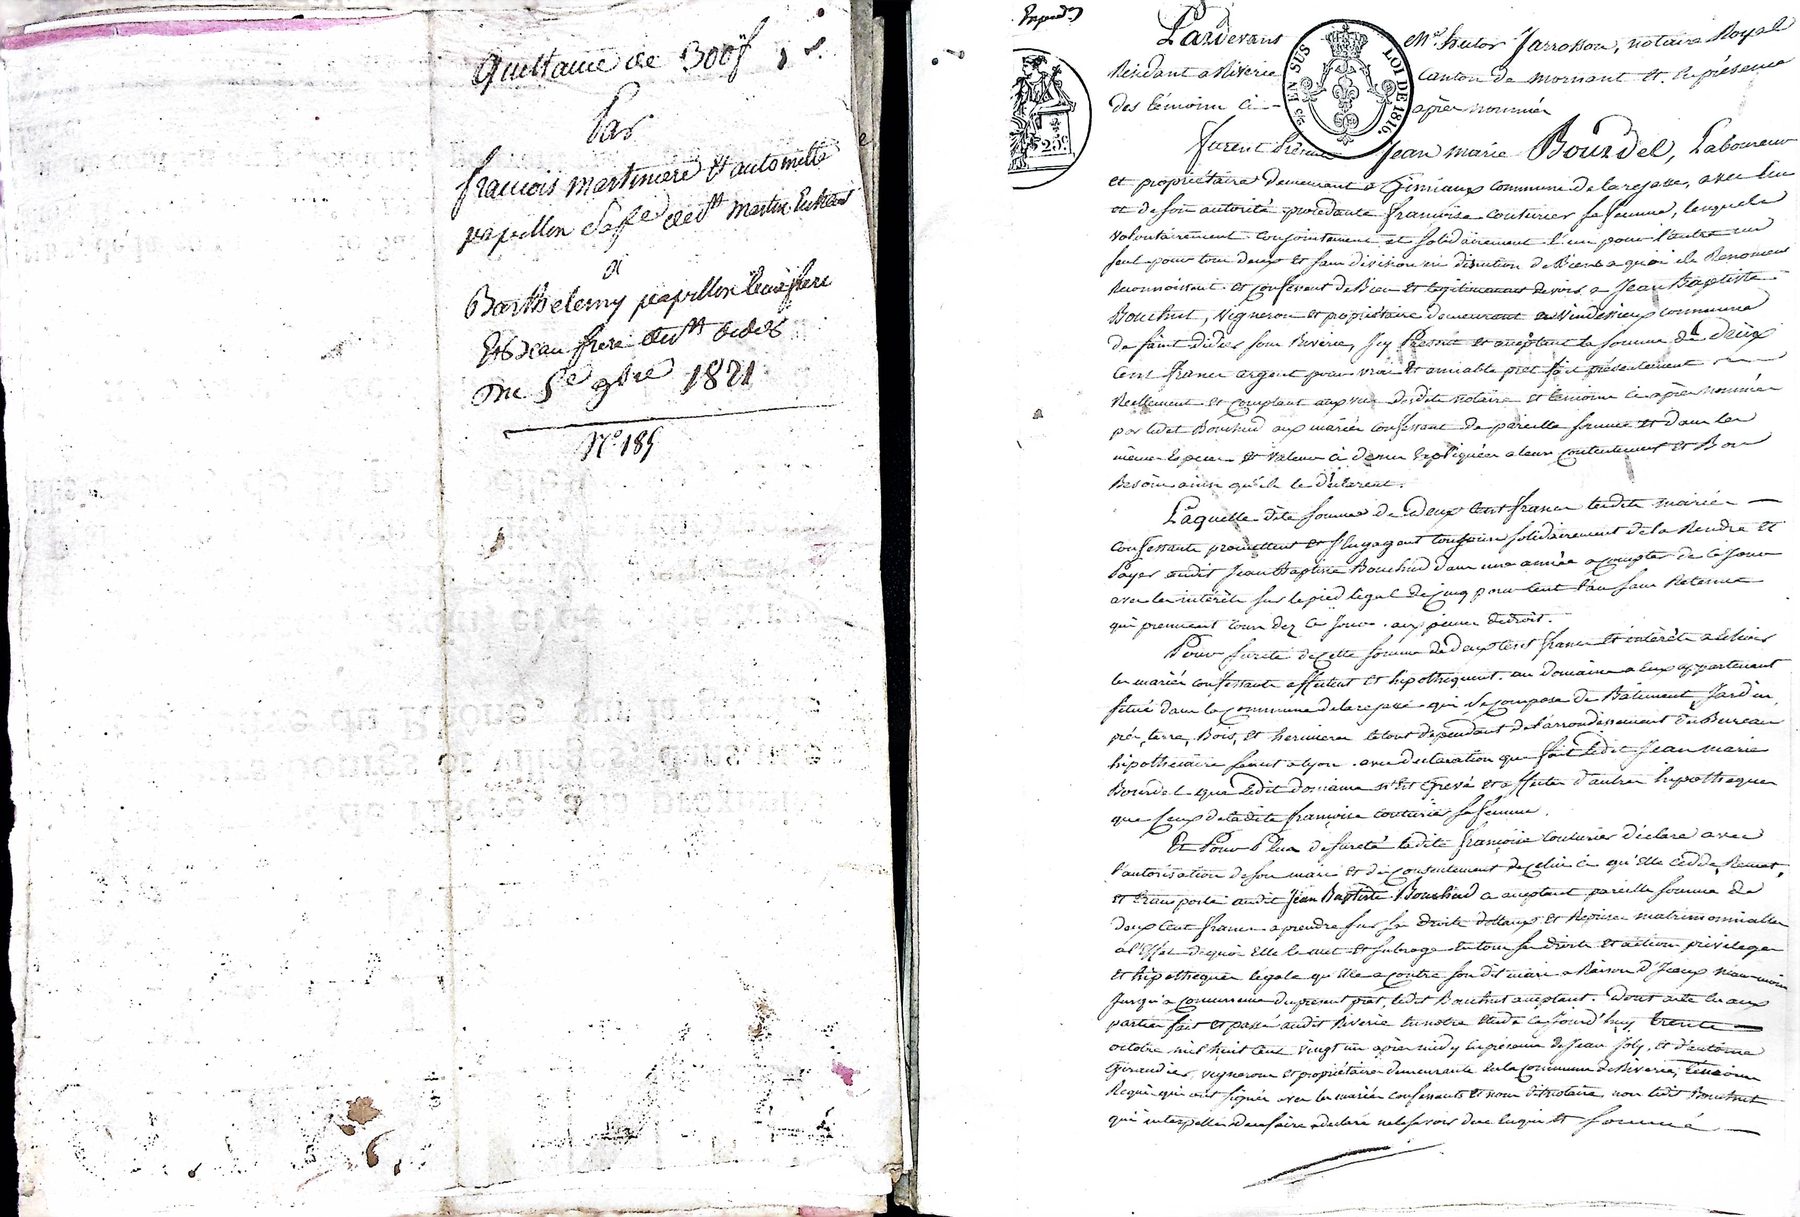 Quittance de 300f
Par
francois martiniere et antoinette
papillon sa fe de st martin
a
Barthelemy papillon leur frere
et Beau frere de st didier
du 5e 9bre 1821
N° 185
Expedié
EN SUS LOI DE 1816.
25c
Pardevant Me hector Jarrosson, notaire Royal
Résidant a Riverie Canton de mornant et En présence
des témoins ci- après nommés
furent présents Jean marie Bourdel, Laboureur
et propriétaire demeurant a Gimiaux commune de larajasse, avec lui
et de son autorité procédante françoise couturier sa femme, lesquels
volontairement conjointement et solidairement l'un pour l'autre un
seul pour tous deux et sans division ni discution de Biens a quoi ils Renoncent
Reconnaissent et confessent de Bien et légitimement devoir a Jean Baptiste
Bouchut, vigneron et propriétaire demeurant au commune
de saint didier sous Riverie, Icy présent et acceptant la somme de deux
Cent francs argent pour vrai et amiable prêt fait présentement
Réellement et comptant aux vues desdits notaire et témoins ci après nommés
par ledit Bouchud aux mariés confessants de pareille somme et dans les
mêmes Especes et valeurs ci dessus Expliquées a leur contentement et Bon
Besoin ainsi qu'ils le déclarent.
Laquelle dite somme de deux Cent francs lesdits mariés
confessants promettent et s'Engagent toujours solidairement de la Rendre et
Payer audit Jean Baptiste Bouchud dans une année a compter de ce jour
avec les intérêts sur le pied légal de Cinq pour Cent l'an sans Retenue
qui prennent cours dez ce jour. aux peines de droit.
Pour sureté de cette somme de deux Cent francs et intérêts a Echoir
les mariés confessants affectent et hipothéquent un domaine a Eux appartenant
situé dans la commune de larajasse qui se compose de Bâtiment, Jardin,
prés, terre, Bois, et hermieres le tout dépendant de l'arrondissement du Bureau
hipothécaire séant a Lyon. avec déclaration que fait ledit Jean marie
Bourdel que ledit domaine n'est Grevé et affecté d'autres hipotheques
que Ceux de ladite françoise couturier sa femme.
Et Pour Plus de sureté ladite françoise couturier déclare avec
l'autorisation de son mari et du consentement de celui ci qu'elle cedde, Remet,
et transporte audit Jean Baptiste Bouchud ce acceptant pareille somme de
deux Cent francs a prendre sur ses droits dottaux et Reprises matrimonialles
a l'Effet de quoi elle le met et subroge En tous ses droits et actions privileges
et hipotheques legale qu'elle a contre son dit mari a Raison d'Iceux néanmoins
Jusqu'a Concurrence du present prêt, ledit Bouchut acceptant. Dont acte lu aux
parties fait et passé audit Riverie En notre etude Ce Jourd'huy trente
octobre mil huit Cent vingt un après midy En présence de Jean Joly, et d'antoine
Giraudier, vignerons et propriétaires demeurants En la Commune de Riverie, témoins
Requis qui ont signés avec les mariés confessants et nous dit notaire, non ledit Bouchut
qui interpellé de ce faire a déclaré ne le savoir de ce Enquis et sommé